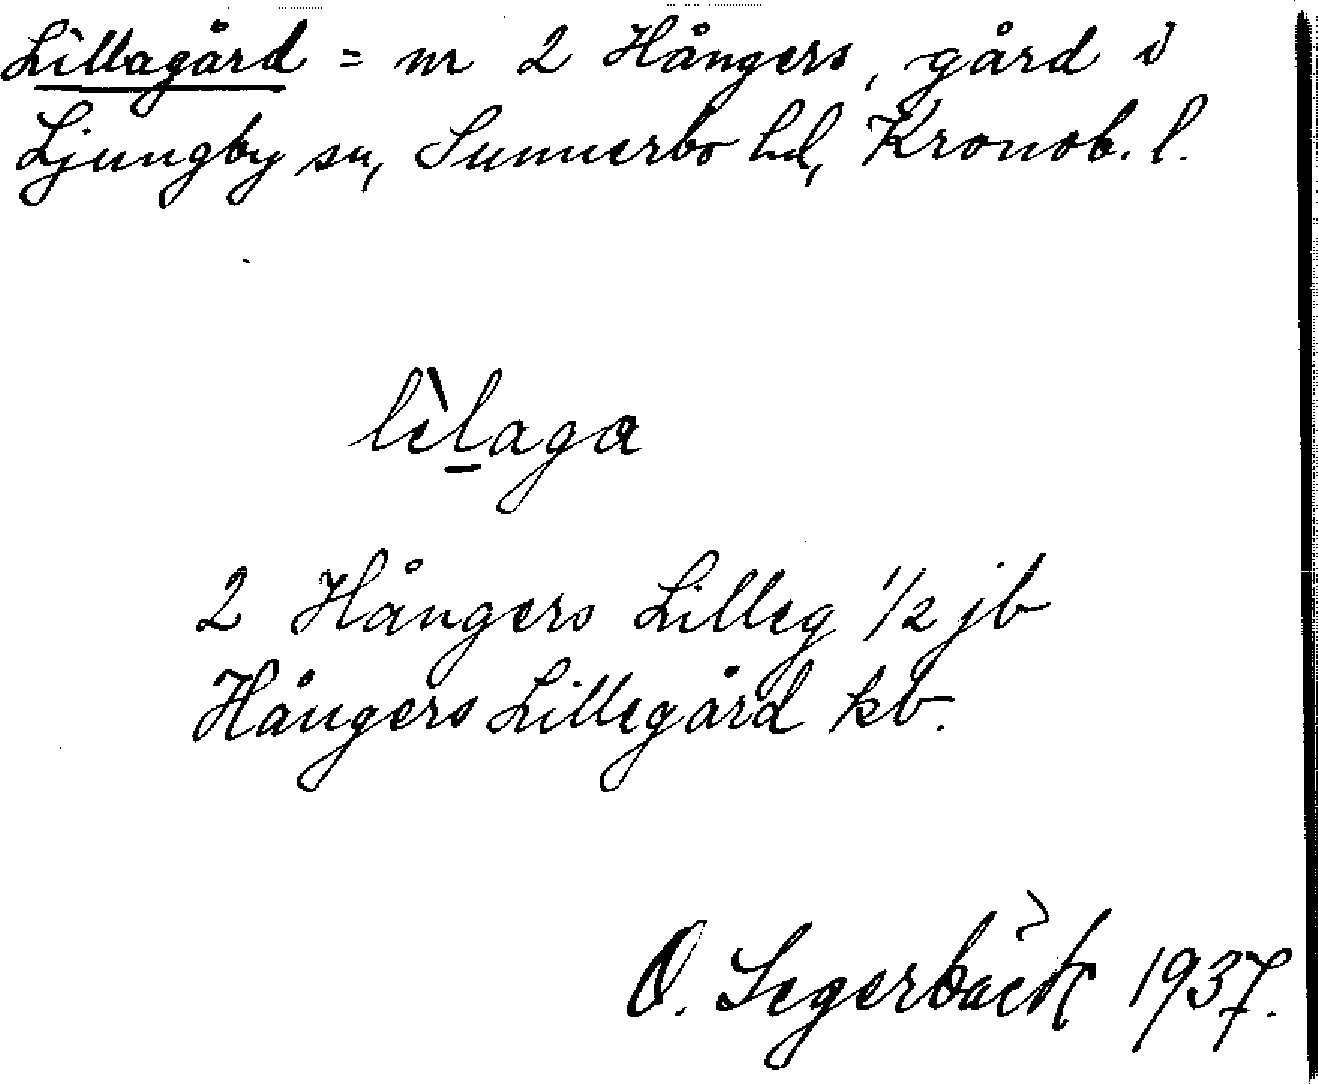 Lillagård = nr 2 Hångers, gård i
Ljungby sn, Sunnerbo hd, Kronob. l.
lìl̲aga
2 Hångers Lilleg 1/2 jb
Hångers Lillegård kb.
O. Segerbäck 1937.